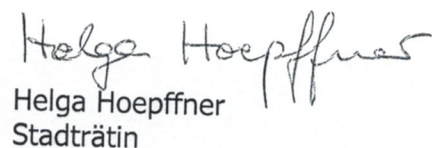 Helga Hoepffner
Helga Hoepffner
Stadträtin